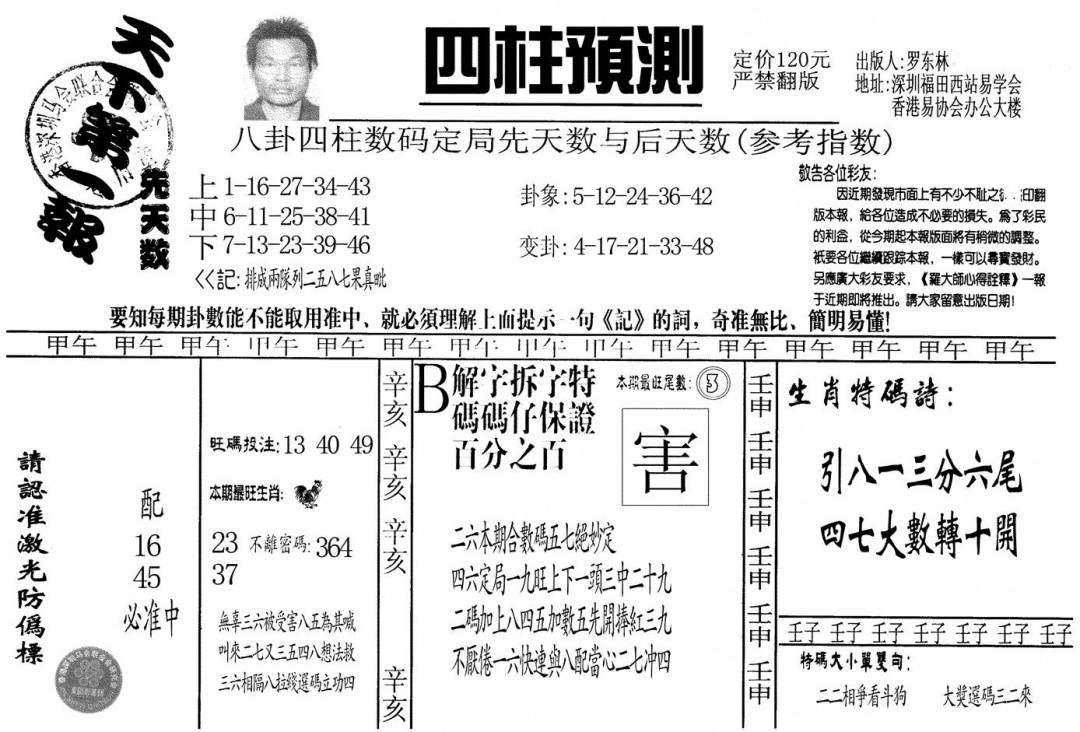 天下第一報
四柱預測
定价120元
严禁翻版
出版人:罗东林
地址:深圳福田西站易学会
香港易协会办公大楼
八卦四柱数码定局先天数与后天数(参考指数)
先天数
上 1-16-27-34-43
中 6-11-25-38-41
下 7-13-23-39-46
<<記:排成兩隊列二五八七果真毗
卦象:5-12-24-36-42
变卦:4-17-21-33-48
敬告各位彩友:
因近期發現市面上有不少不耻之 印翻
版本報，給各位造成不必要的損失。爲了彩民
的利益，從今期起本報版面將有稍微的調整。
衹要各位繼續跟踪本報，一樣可以尋寶發財。
另應廣大彩友要求，《羅大師心得詮釋》一報
于近期即將推出。請大家留意出版日期!
要知每期卦數能不能取用准中、就必須理解上面提示一句《記》的詞，奇准無比、簡明易懂!
甲午 甲午 甲午 甲午 甲午 甲午 甲午 甲午 甲午 甲午 甲午 甲午 甲午 甲午 甲午
請認准激光防僞標
配
16
45
必准中
旺碼投注:13 40 49
本期最旺生肖:
23 不離密碼:364
37
無辜三六被受害八五為其喊
叫來二七又三五四八想法救
三六相隔八拉綫選碼立功四
辛亥
辛亥
辛亥
辛亥
B 解字拆字特
碼碼仔保證
百分之百
本期最旺尾數:3
害
二六本期合數碼五七絕妙定
四六定局一九旺上下一頭三中二十九
二碼加上八四五加數五先開捧紅三九
不厭倦一六快連與八配當心二七冲四
壬申
壬申
壬申
壬申
壬申
壬申
生肖特碼詩:
引八一三分六尾
四七大數轉十開
壬子 壬子 壬子 壬子 壬子 壬子 壬子
特碼大小單雙句:
二二相爭看斗狗 大獎選碼三二來